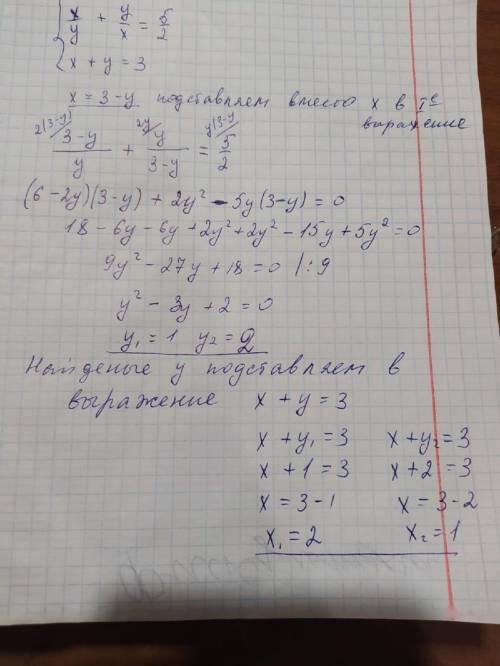 x/y + y/x = 5/2
x + y = 3
x = 3 - y подставляем вместо x в Iе
выражение
2(3-y) 2y y(3-y)
3-y/y + y/3-y = 5/2
(6 - 2y)(3 - y) + 2y² - 5y(3 - y) = 0
18 - 6y - 6y + 2y² + 2y² - 15y + 5y² = 0
9y² - 27y + 18 = 0 /:9
y² - 3y + 2 = 0
y₁ = 1 y₂ = 2
Найденые y подставляем в
выражение x + y = 3
x + y₁ = 3 x + y₂ = 3
x + 1 = 3 x + 2 = 3
x = 3 - 1 x = 3 - 2
x₁ = 2 x₂ = 1